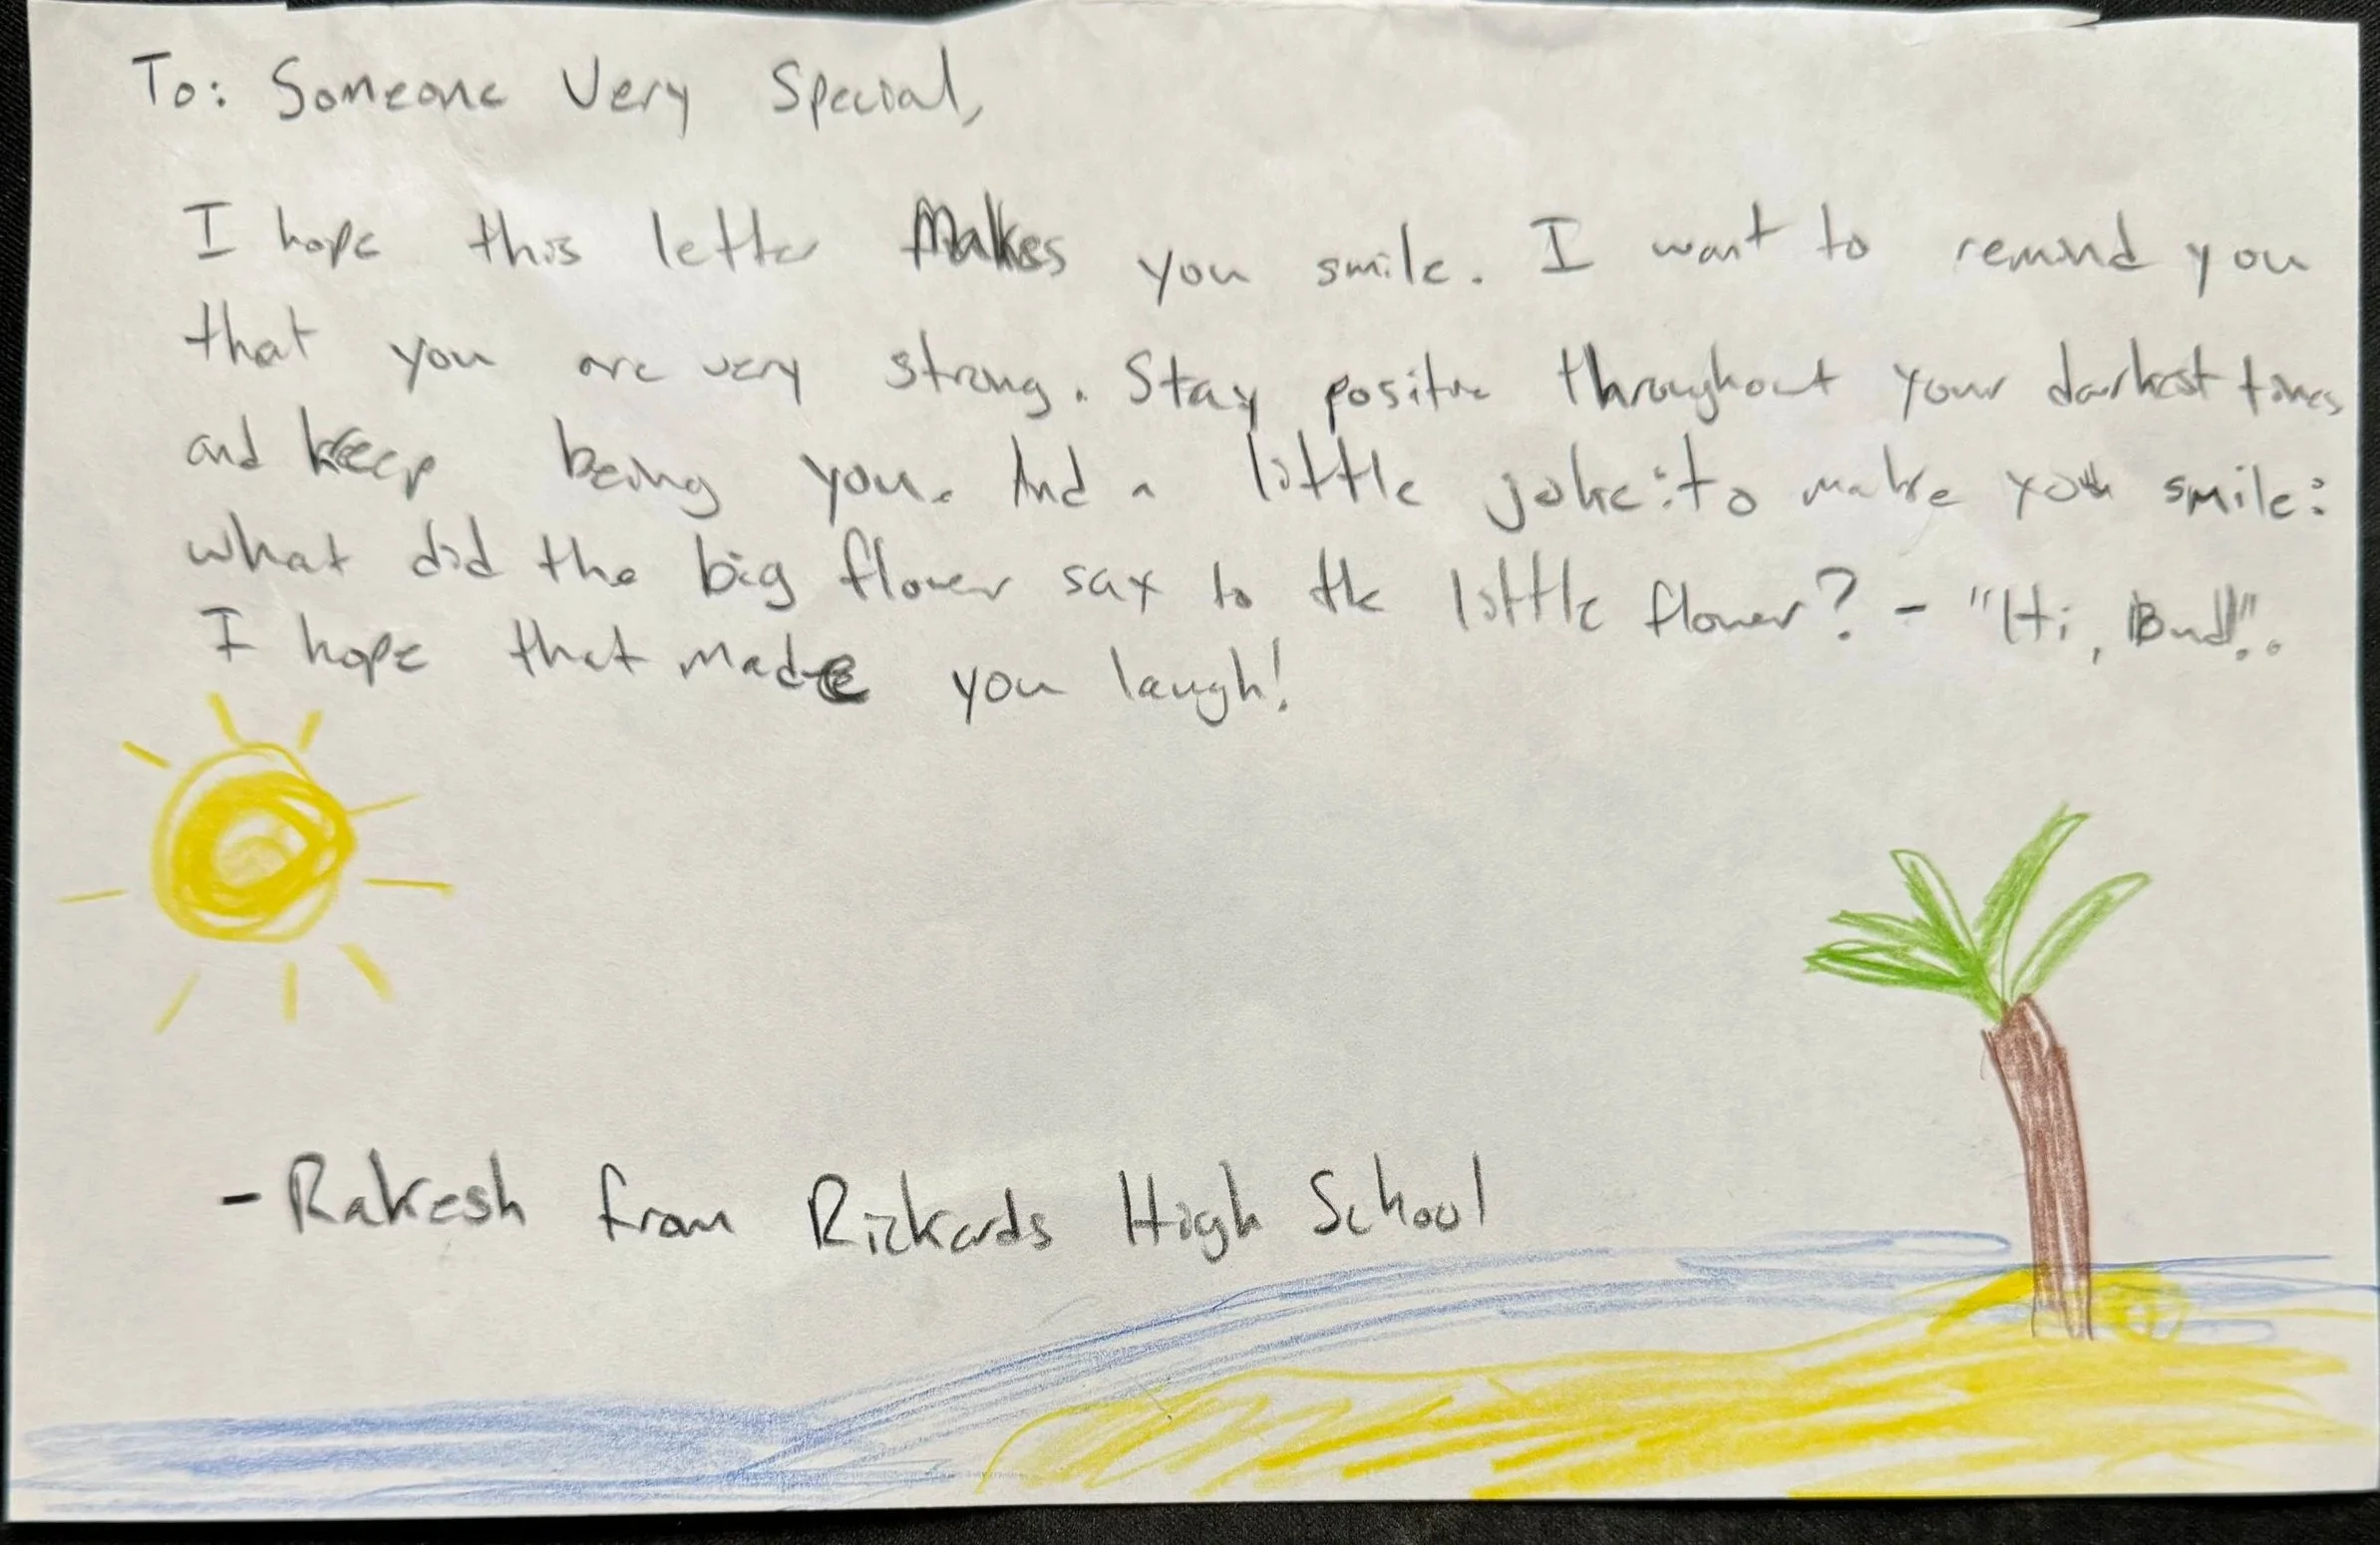 To: Someone Very Special,
I hope this letter Makes you smile. I want to remind you
that you are very strong. Stay positive throughout your darkest times
and keep being you. And a little joke: to make you smile:
what did the big flower say to the little flower? - "Hi, Bud!".
I hope that made you laugh!
- Rakesh from Rickards High School